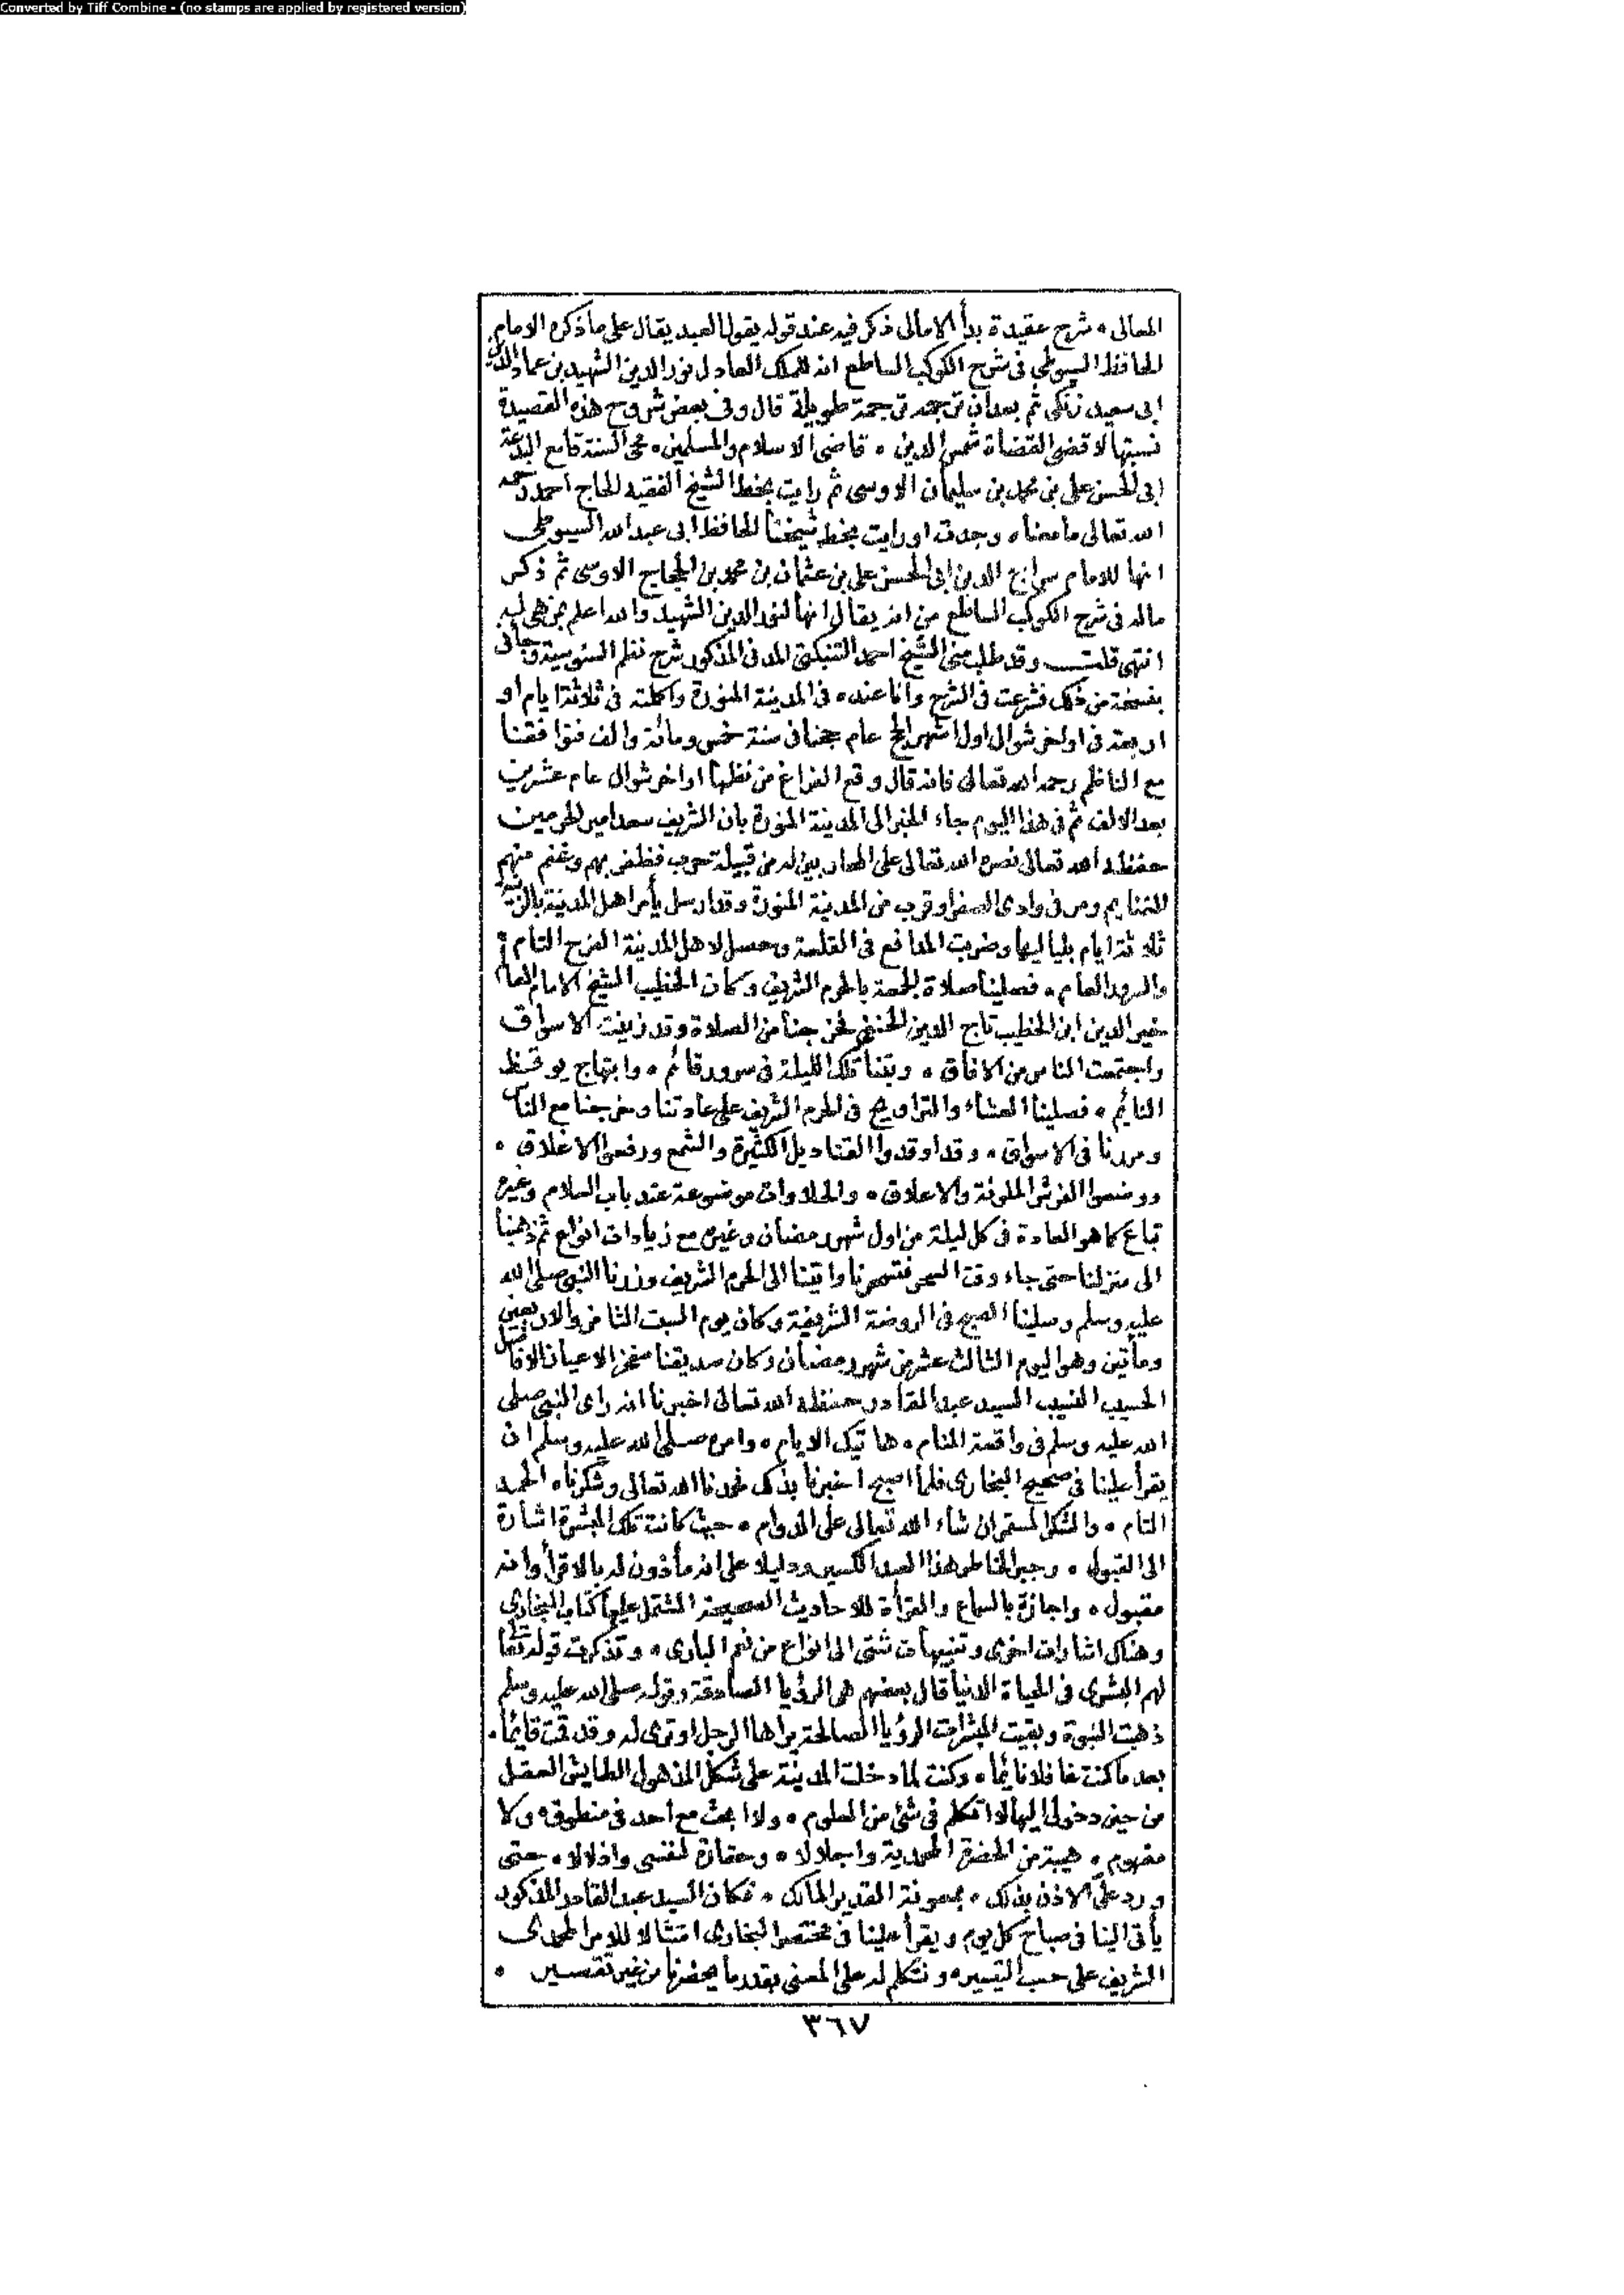 Converted by Tiff Combine - (no stamps are applied by registered version)
المعالى ٠ شرح عقيدة بدأ الامالى ذكر فيه عند قوله يقول العبد يقال على ما ذكره الامام
الحافظ السيوطى فى شرح الكوكب الساطع انه للملك العادل نور الدين الشهيد بن عماد الدين
ابى سعيد زنكى ثم بعد ان ترجمه ترجمة طويلة قال وفى بعض شروح هذه القصيدة
نسبتها لاقضى القضاة شمس الدين ٠ قاضى الاسلام والمسلمين ٠ محى السنة قامع البدعة
ابى الحسن على بن محمد بن سليمان الاوسى ثم رايت بخط الشيخ الفقيه الحاج احمد رحمه
الله تعالى ما معناه وجدت او رايت بخط شيخنا الحافظ ابى عبد الله السيوطى
انها للامام سراج الدين ابى الحسن على بن عثمان بن محمد بن الحجاج الاوسى ثم ذكر
ماله فى شرح الكوكب الساطع من انه يقال انها لنور الدين الشهيد والله اعلم بمن هى له
انتهى قلت وقد طلب منى الشيخ احمد التنبكتى المدنى المذكور شرح نظم السنوسية وجأنى
بنسخة من ذلك فشرعت فى الشرح وانا عنده فى المدينة المنورة واكملته فى ثلاثة ايام او
اربعة فى اواخر شوال اول اشهر الحج عام حجنا فى سنة خمس ومائة والف فتوافقنا
مع الناظم رحمه الله تعالى فانه قال وقع الفراغ من نظمها اواخر شوال عام عشرين
بعد الالف ثم فى هذا اليوم جاء الخبر الى المدينة المنورة بان الشريف سعد امير الحرمين
حفظه الله تعالى نصره الله تعالى على المحاربين له من قبيلة حرب فظفر بهم وغنم منهم
الغنايم ومر فى وادى الصفرا وقرب من المدينة المنورة وقد ارسل يأمر اهل المدينة بالزينة
ثلاثة ايام بلياليها وضربت المدافع فى القلعة وحصل لاهل المدينة الفرح التام ٠
والسرور العام ٠ فصلينا صلاة الجمعة بالحرم الشريف وكان الخطيب الشيخ الامام العالم
خير الدين ابن الخطيب تاج الدين الحنفى فخرجنا من الصلاة وقد زينت الاسواق
واجتمعت الناس من الافاق ٠ وبتنا تلك الليلة فى سرور قائم ٠ وابتهاج يوقظ
النائم ٠ فصلينا العشاء والتراويح فى الحرم الشريف على عادتنا وخرجنا مع الناس
ومررنا فى الاسواق ٠ وقد اوقدوا القناديل الكثيرة والشمع ورفعوا الاغلاق ٠
ووضعوا الفرش الملونة والاعلاق ٠ والحلاوات موضوعة عند باب السلام وغيره
تباع كما هو العادة فى كل ليلة من اول شهر رمضان وغيره مع زيادات انواع ثم ذهبنا
الى منزلنا حتى جاء وقت السحر فتسحرنا واتينا الى الحرم الشريف وزرنا النبى صلى الله
عليه وسلم وصلينا الصبح فى الروضة الشريفة وكان يوم السبت الثامن والاربعين
ومأتين وهو اليوم الثالث عشر من شهر رمضان وكان صديقنا مفخر الاعيان الافاضل
الحسيب النسيب السيد عبد القادر حفظه الله تعالى اخبرنا انه راى النبى صلى
الله عليه وسلم فى واقعة المنام ٠ هاتيك الايام ٠ وامره صلى الله عليه وسلم ان
يقرأ علينا فى صحيح البخارى فلما اصبح اخبرنا بذلك فحمدنا الله تعالى وشكرناه الحمد
التام ٠ والشكر المستمر ان شاء الله تعالى على الدوام ٠ حيث كانت تلك المبشرة اشارة
الى القبول ٠ وجبر الخاطر هذا العبد الكسير ودليلا على انه مأذون له بالاقرأ وانه
مقبول ٠ واجازة بالسماع والقرأة للاحاديث الصحيحة المشتمل عليها كتاب البخارى
وهناك اشارات اخرى وتنبيهات شتى الى انواع من نعم البارى ٠ وتذكرت قوله تعالى
لهم البشرى فى الحياة الدنيا قال بعضهم هو الرؤيا الصادقة وقوله صلى الله عليه وسلم
ذهبت النبوة وبقيت المبشرات الرؤيا الصالحة يراها الرجل او ترى له وقد قمت قائما ٠
بعد ما كنت غافلا نائما ٠ وكنت لما دخلت المدينة على شكل المذهول الطايش العقل
من حين دخولى اليها لا اتكلم فى شئ من العلوم ٠ ولا ابحث مع احد فى منطوق ولا
مفهوم ٠ هيبة من الحضرة المحمدية واجلالا ٠ وحقارة لنفسى واذلالا ٠ حتى
ورد علىّ الاذن بذلك ٠ بمعونة القدير المالك ٠ فكان السيد عبد القادر المذكور
يأتى الينا فى صباح كل يوم ويقرأ علينا فى مختصر البخارى امتثالا للامر المحمدى
الشريف على حسب التيسير ٠ ونتكلم له على المعنى بقدر ما يحضرنا من غير تقسير ٠
٣٦٧